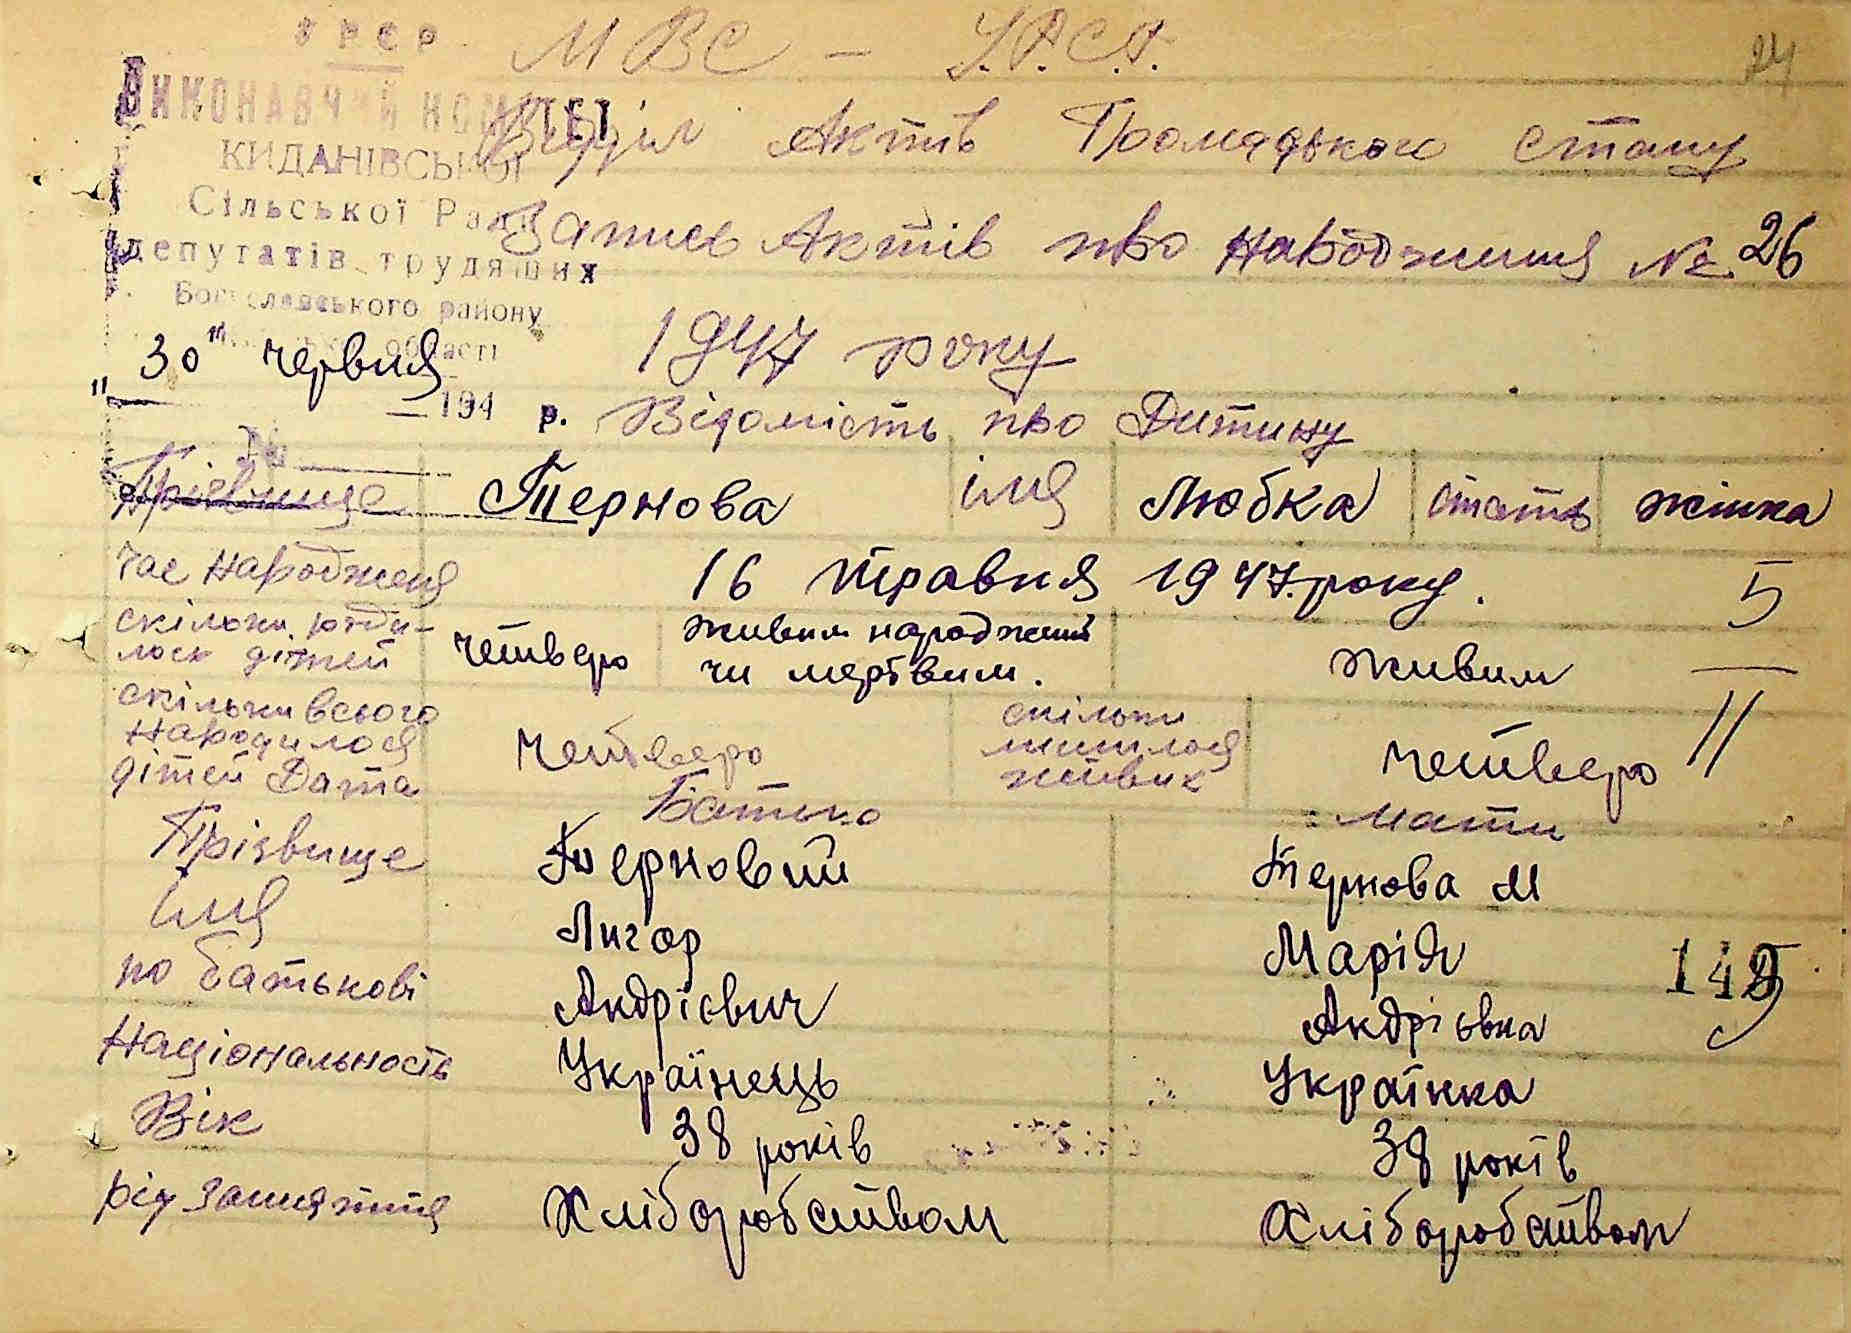 УРСР
МВС – У.Р.С.Р. 24
ВИКОНАВЧИЙ КОМІТЕТ
Відділ Актів Громадського стану
КИДАНІВСЬКОЇ
Сільської Ради
Запись Актів про народження № 26
депутатів трудящих
Богуславського району
області
30 червня 1947 року
" — 194 р. Відомість про Дитину
№
Прізвище Тернова імя Любка стать жінка
час народження 16 травня 1947. року. 5
скільки роди-
лось дітей четверо живим народжений
чи мертвим. живим
скільки всього
народилося
дітей Дата четверо скільки
лишилося
живих четверо 11
Батько мати
Прізвище Терновий Тернова М
імя Лигор Марія
по батькові Андрієвич Андрієвна 149
Національность Українець Українка
Вік 38 років 38 років
рід заняття Хліборобством Хліборобством